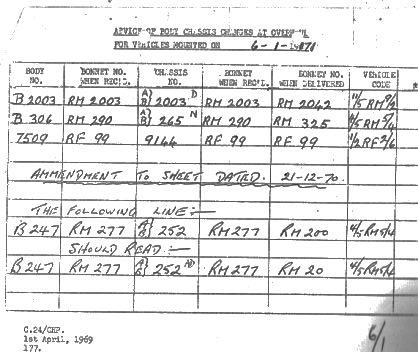 ADVICE OF BODY CHASSIS CHANGES AT OVERHAUL
FOR VEHICLES MOUNTED ON 6-1-1971
BODY NO. BONNET NO. WHEN RECD. CHASSIS NO. BONNET WHEN REC'D. BONNET NO. WHEN DELIVERED VEHICLE CODE
B 2003 RM 2003 A) B) 2003 D RM 2003 RM 2042 11/5 RM 9/2
B 306 RM 290 A) B) 265 N RM 290 RM 325 4/5 RM 5/4
7509 RF 99 9144 RF 99 RF 99 1/2 RF 2/6
AMMENDMENT TO SHEET DATED. 21-12-70.
THE FOLLOWING LINE:—
B 247 RM 277 A) B) 252 RM 277 RM 200 4/5 RM 5/4
SHOULD READ:—
B 247 RM 277 A) B) 252 RM 277 RM 20 4/5 RM 5/4
C.24/CHP.
1st April, 1969
177.
6/1